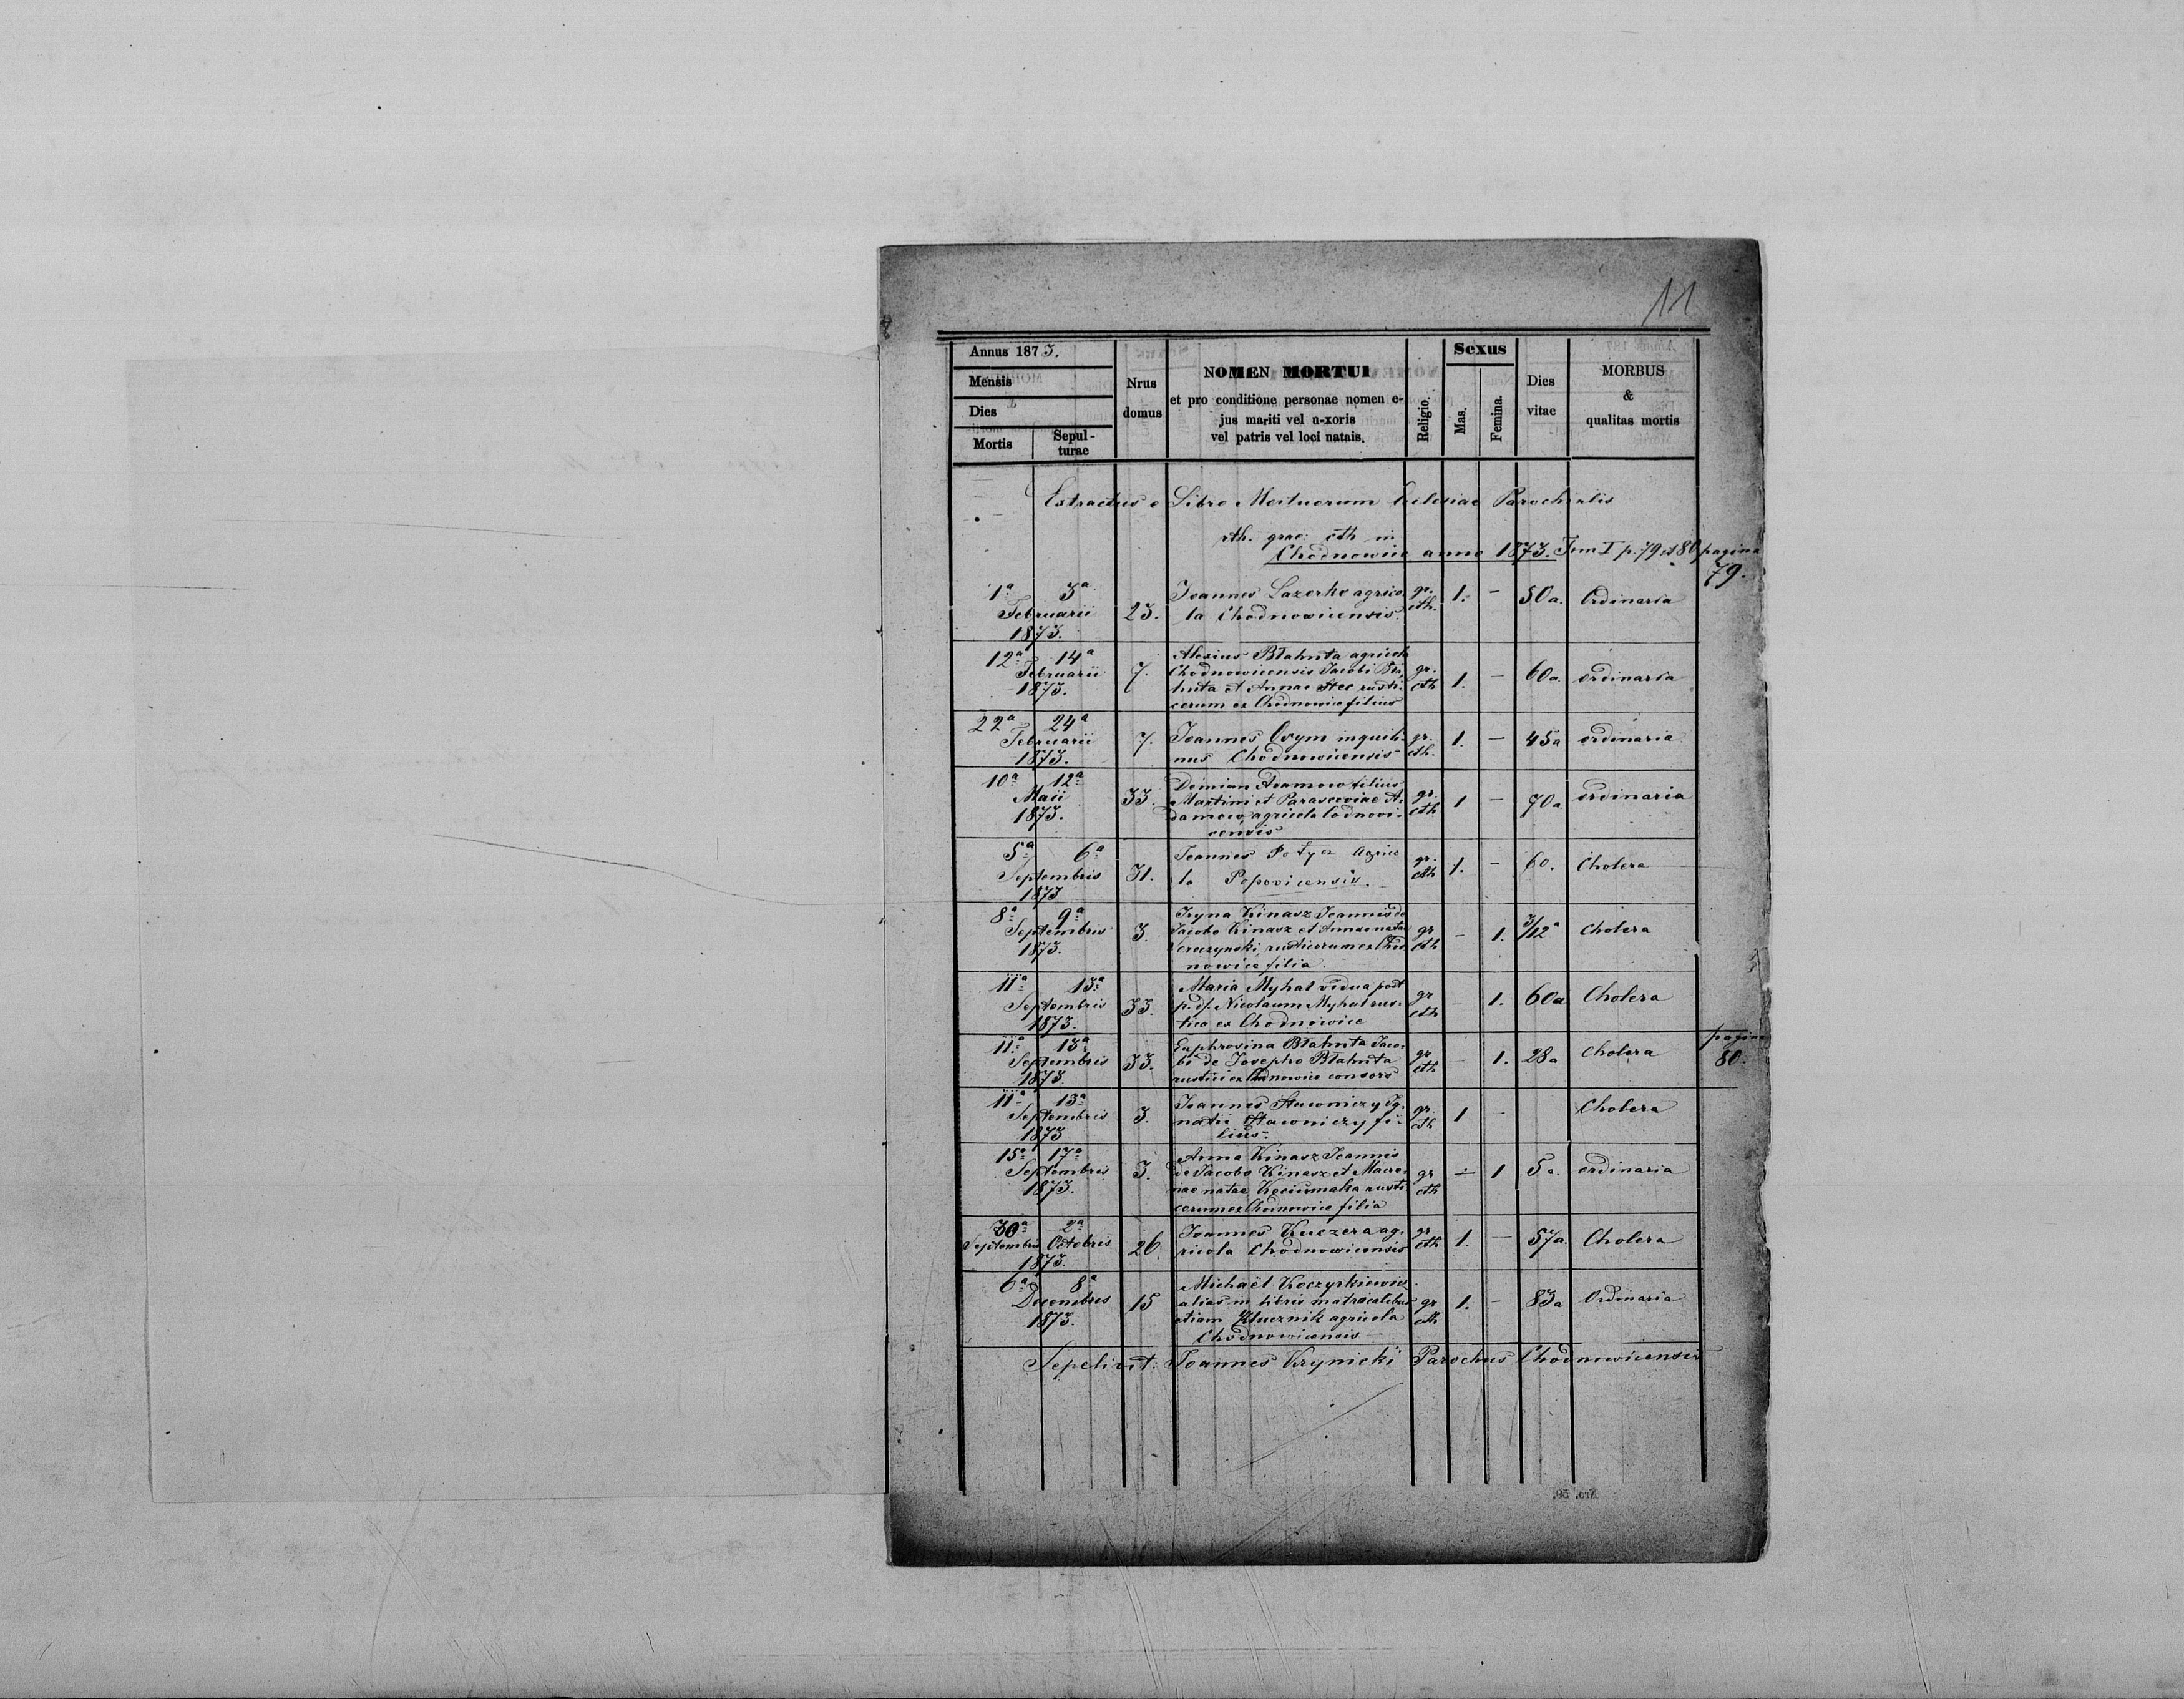 11
Annus 1873.
Mensis
Dies
Mortis
Sepul-
turae
Nrus
domus
NOMEN MORTUI
et pro conditione personae nomen e-
jus mariti vel u-xoris
vel patris vel loci natais.
Religio.
Sexus
Mas.
Femina.
Dies
vitae
MORBUS
&
qualitas mortis
Extractus e Libro Mortuorum Eclesiae Parochialis
rth. grae: cth in
Chodnowice anno 1873. Tom I p. 79 et 80 pagina
79.
1ª 3ª
Februarii
1873.
23.
Joannes Lazorko agrico
la Chodnowicensis.
gr.
cth.
1. – 50a. Ordinaria
12ª 14ª
Februarii
1873.
7.
Alexius Błahuta agricola
Chodnowicensis Jacobi Bła
huta et Annae Stec rusti
corum ex Chodnowice filius
gr.
cth
1. – 60a ordinaria
22ª 24ª
Februarii
1873.
7.
Joannes inquili-
nus Chodnowicensis
gr.
cth.
1. – 45a ordinaria
10ª 12ª
Maii
1873.
33.
Demian Adamow filius
Martini et Parasceviae A-
damow, agricola Codnovi-
censis
gr.
cth
1 – 70a ordinaria
5ª 6ª
Septembris
1873
31.
Joannes Potycz Agrico
la Popovicensis.
gr.
cth
1. – 60. Cholera
8ª 9ª
Septembris
1873.
3.
Iryna Kinasz Joannis de
Jacobo Kinasz et Annae natae
rusticorum ex Chod
nowice filia.
gr
cth
– 1. 3/12ª Cholera
11ª 13ª
Septembris
1873.
33.
Maria Myhal vidua post
p. df. Nicolaum Myhal rus-
tica ex Chodnowice
gr
cth
– 1. 60a Cholera
pagina
80.
11ª 13ª
Septembris
1873.
33.
Euphrosina Błahuta Jaco-
bi de Josepho Błahuta
rustici ex Chodnowice consors
gr
cth
– 1. 28a Cholera
11ª 13ª
Septembris
1873
3.
Joannes Stawniczy Ig-
natii Stawniczy fi-
lius.
gr.
cth
1 – Cholera
15ª 17ª
Septembris
1873.
3.
Anna Kinasz Joannis
de Jacobo Kinasz et Macre
nae natae rusti
corum ex Chodnowice filia
gr
cth
– 1 5a. ordinaria
30ª 2ª
Septembris Octobris
1873.
26.
Joannes Kuczera ag-
ricola Chodnowicensis
gr
cth
1. – 57a. Cholera
6ª 8ª
Decembris
1873.
15
Michaël
alias in libris matricalibus
etiam Klucznik agricola
Chodnowicensis
gr
cth
1. – 83a Ordinaria
Sepelivit: Joannes Krynicki Parochus Chodnowicensis
Nro. 95.